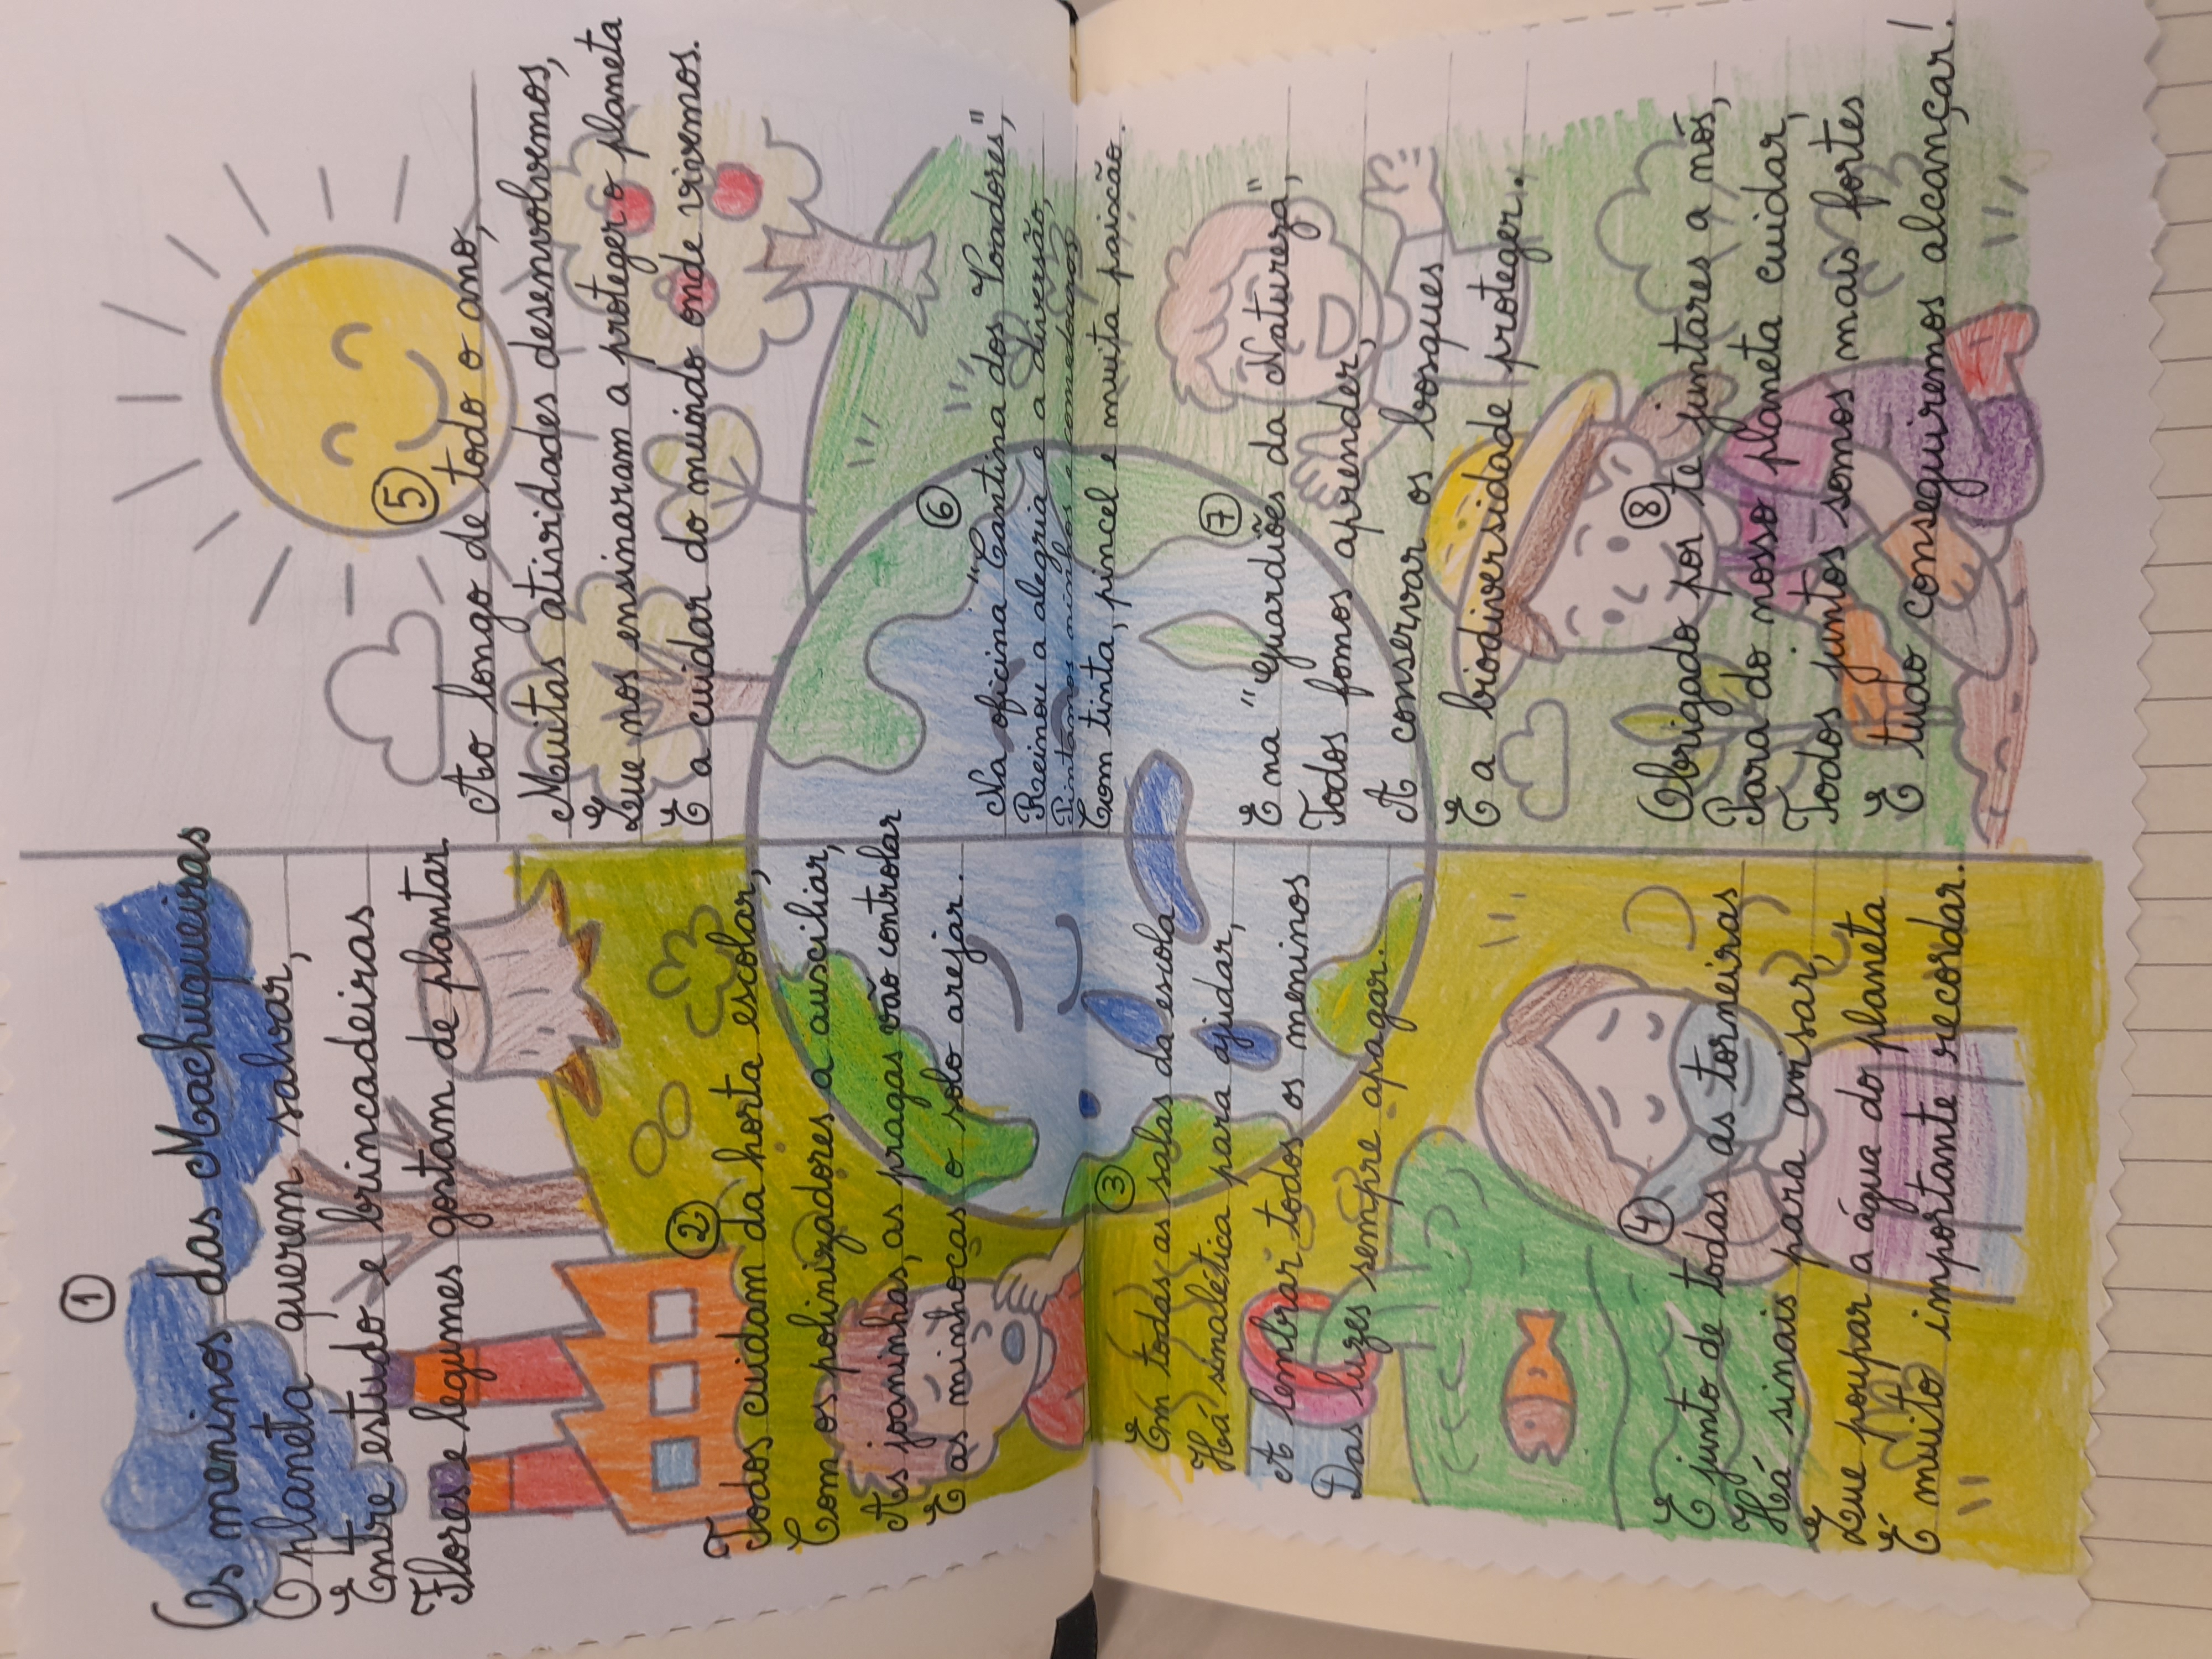 1
Os meninos das Machuqueiras
O planeta querem salvar,
Entre estudo e brincadeiras
Flores e legumes gostam de plantar.
2
Todos cuidam da horta escolar,
Com os polinizadores a auxiliar,
As joaninhas, as pragas vão controlar
E as minhocas o solo arejar.
3
Em todas as salas da escola
Há sinalética para ajudar,
A lembrar todos os meninos
Das luzes sempre apagar.
4
E junto de todas as torneiras
Há sinais para avisar,
Que poupar a água do planeta
É muito importante recordar.
5
Ao longo de todo o ano,
Muitas atividades desenvolvemos,
Que nos ensinaram a proteger o planeta
E a cuidar do mundo onde vivemos.
6
Na oficina "Cantina dos Voadores",
Reinou a alegria e a diversão,
Pintamos ninhos e comedouros
Com tinta, pincel e muita paixão.
7
E na "Guardiões da Natureza",
Todos fomos aprender,
A conservar os bosques
E a biodiversidade proteger.
8
Obrigado por te juntares a nós,
Para do nosso planeta cuidar,
Todos juntos somos mais fortes
E tudo conseguiremos alcançar!